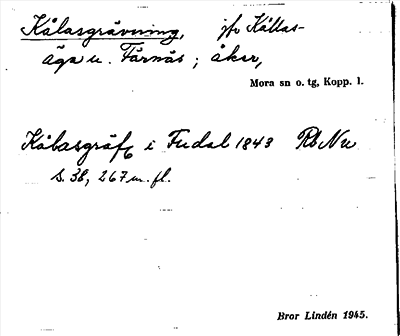 Kålasgrävning, jfr Kållas-
äga u. Färnäs; åker,
Mora sn o. tg, Kopp. l.
Kålasgräf i Fudal 1843 Rb Nu
s. 38, 267 m. fl.
Bror Lindén 1945.